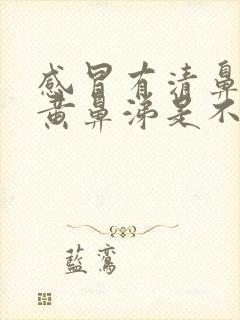 感冒有清鼻
黄鼻涕是不
藍鸞